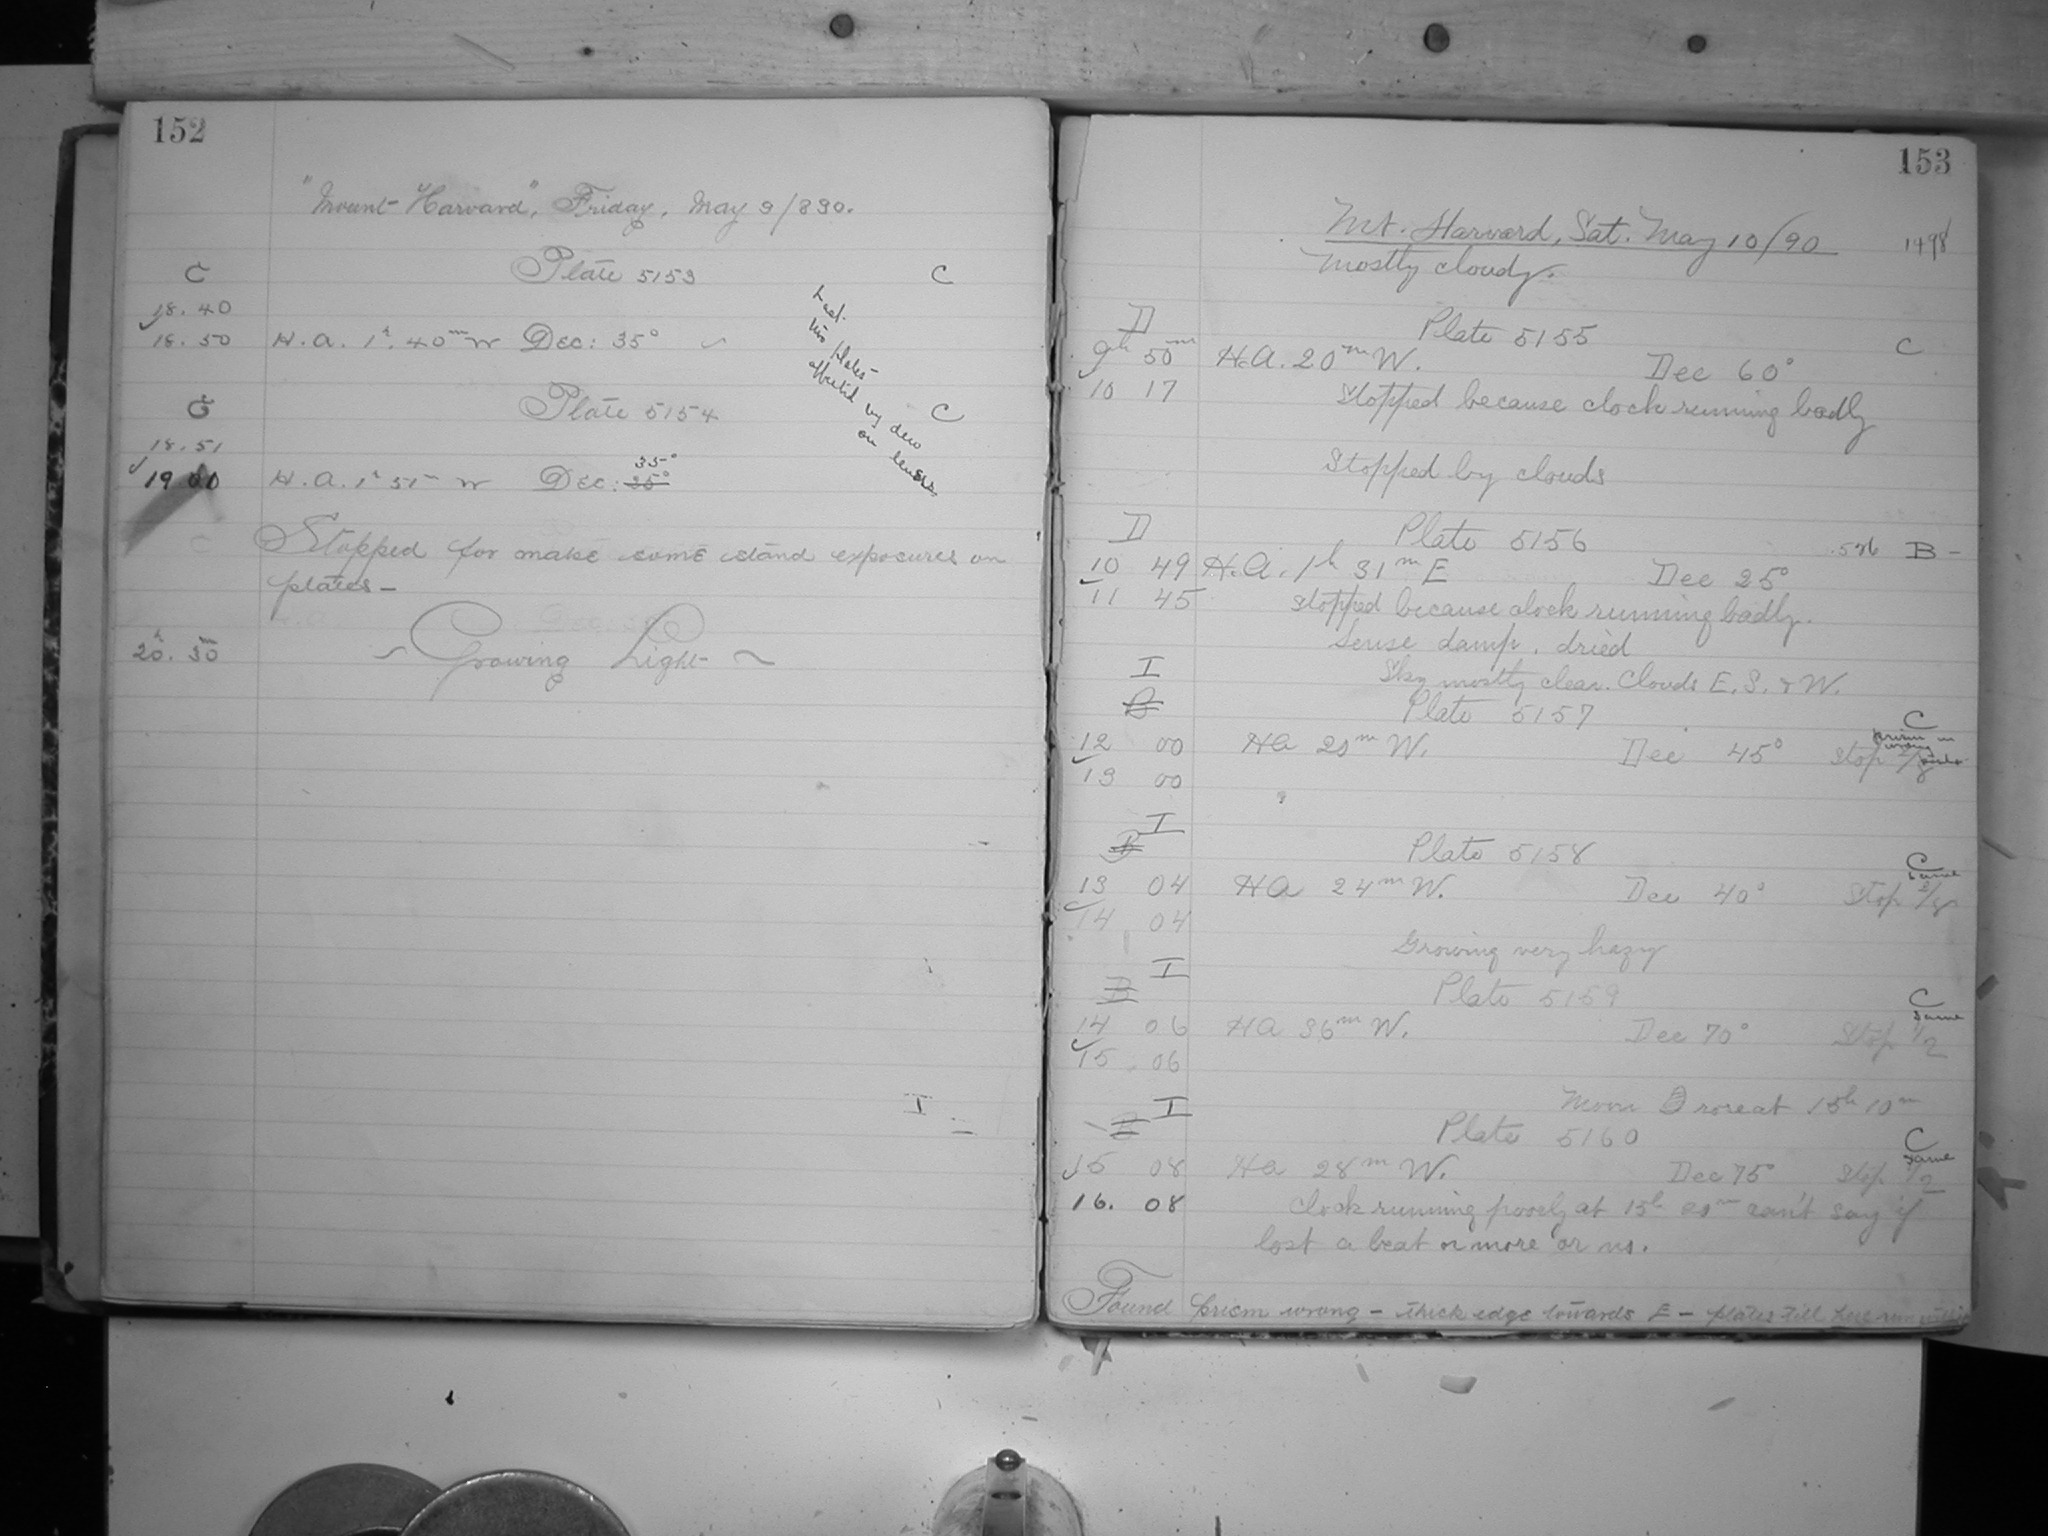 152
"Mount Harvard", Friday, May 9/890.
C Plate 5153 C
18.40
18.50 H.A. 1h. 40m W Dec: 35°
Last
two plates
affected by dew
on lenses.
C Plate 5154 C
18.51
35°
19 00 H.A. 1h 51m W Dec: 25°
Stopped for make some stand exposures on
plates-
20h. 30m ~ Growing Light ~
I
153
Mt. Harvard, Sat. May 10/90 1498
Mostly cloudy.
D Plate 5155
C
9h 50m H.A. 20m W. Dec 60°
10 17 Stopped because clock running badly
Stopped by clouds
D Plate 5156 B -
10 49 H.A. 1h 31m E Dec 25°
11 45 Stopped because clock running badly.
Lense damp, dried
I Sky mostly clear. Clouds E, S, & W.
B Plate 5157 C
prism in
wrong
12 00 HA 20m W. Dec 45° Stop
13 00
I
B Plate 5158 C
same
13 04 HA 24m W. Dec 40° Stop
14 04
Growing very hazy
I
B Plate 5159 C
same
14 06 HA 36m W. Dec 70° Stop 1/2
15 06
I Moon rose at 15h 10m
B Plate 5160 C
same
15 08 HA 28m W. Dec 75° Stop 1/2
16. 08 Clock running poorly at 15h 20m can't say if
lost a beat or more or no.
Found prism wrong - thick edge towards E - plates till here